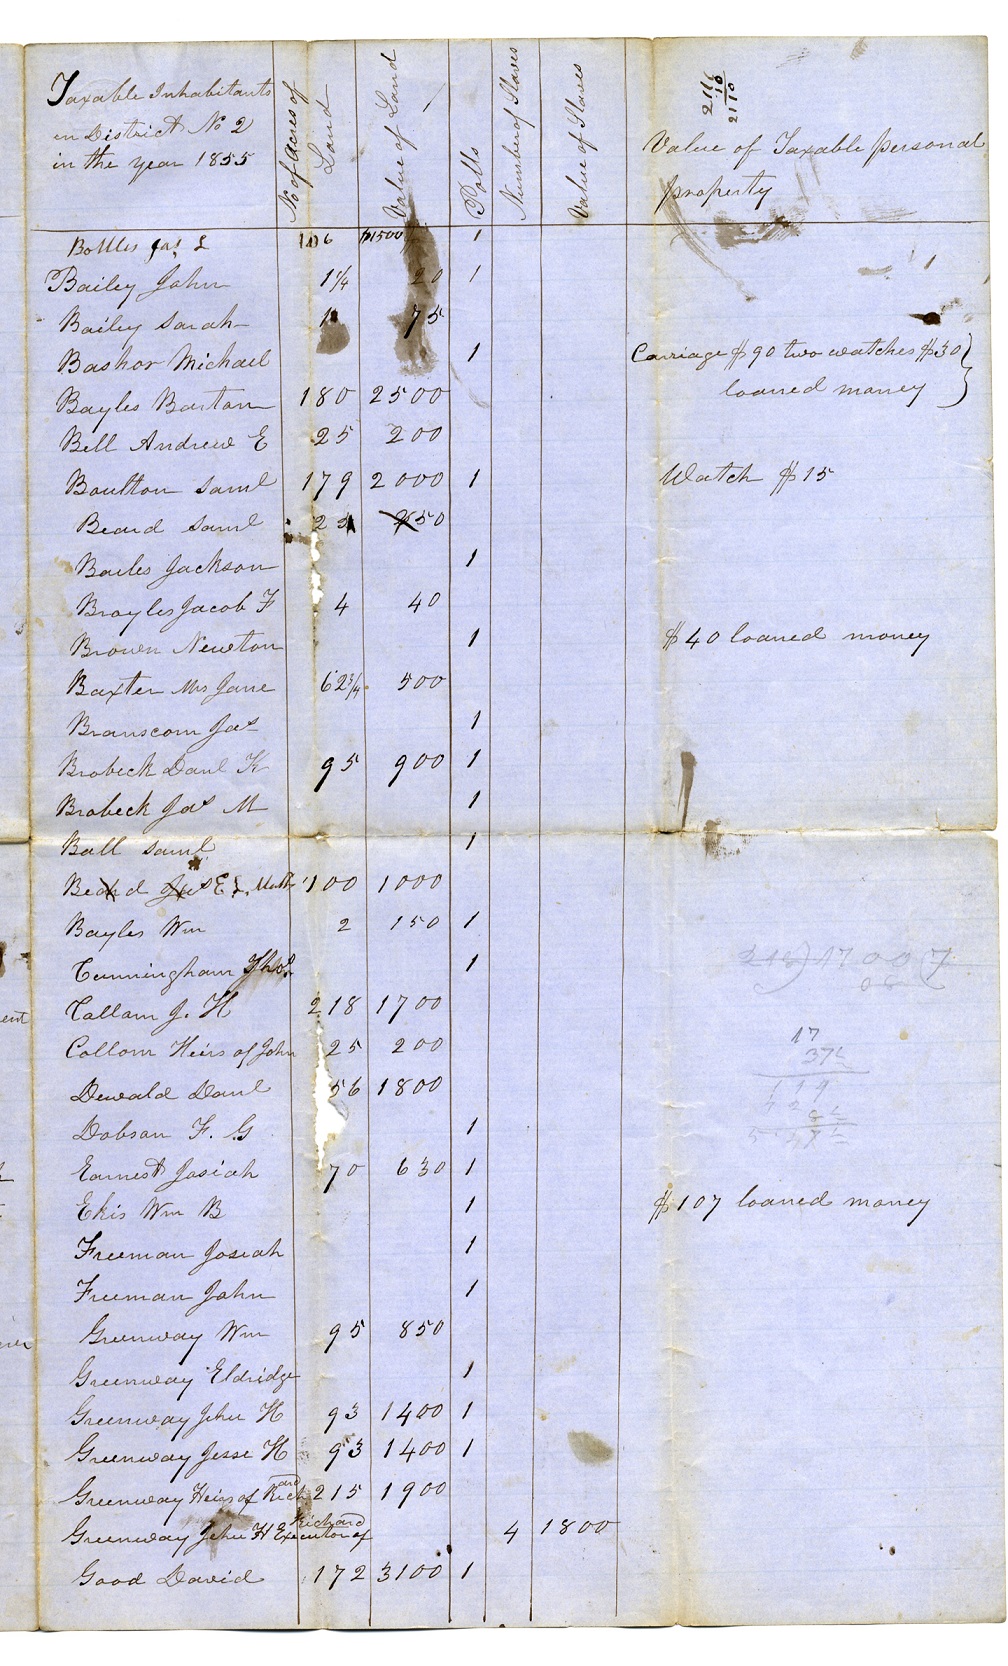 Taxable Inhabitants
in District No 2
in the year 1855
No of Acres of Land
Value of Land
Polls
Number of Slaves
Value of Slaves
Value of Taxable personal
property
211
10
2110
Bottles Jas L 106 $1500 1
Bailey John 1 1/4 20 1
Bailey Sarah 1 75
Bashor Michael 1 Carriage $90 two watches $30
loaned money
Bayles Barton 180 2500
Bell Andrew E 25 200
Boulton Saml 179 2000 1 Watch $15
Beard Saml 250
Bailes Jackson 1
Broyles Jacob F 4 40
Brown Newton 1 $40 loaned money
Baxter Mrs Jane 62 3/4 500
Branscom Jas 1
Brobeck Danl K 95 900 1
Brobeck Jas M 1
Ball Saml 1
Beard Jas E L 100 1000
Bayles Wm 2 150 1
Cunningham Thos 1
Callam J. H 218 1700
218) 1700 (7
Collom Heirs of John 25 200
17
37
Dewald Danl 56 1800
Dobson F. G 1
Earnest Josiah 70 630 1
Ekis Wm B 1 $107 loaned money
Freeman Josiah 1
Freeman John 1
Greenway Wm 95 850
Greenway Eldridge 1
Greenway John H 93 1400 1
Greenway Jesse H 93 1400 1
Greenway Heirs of Richard 215 1900
Greenway John H Executor of Richard 4 1800
Good David 172 3100 1